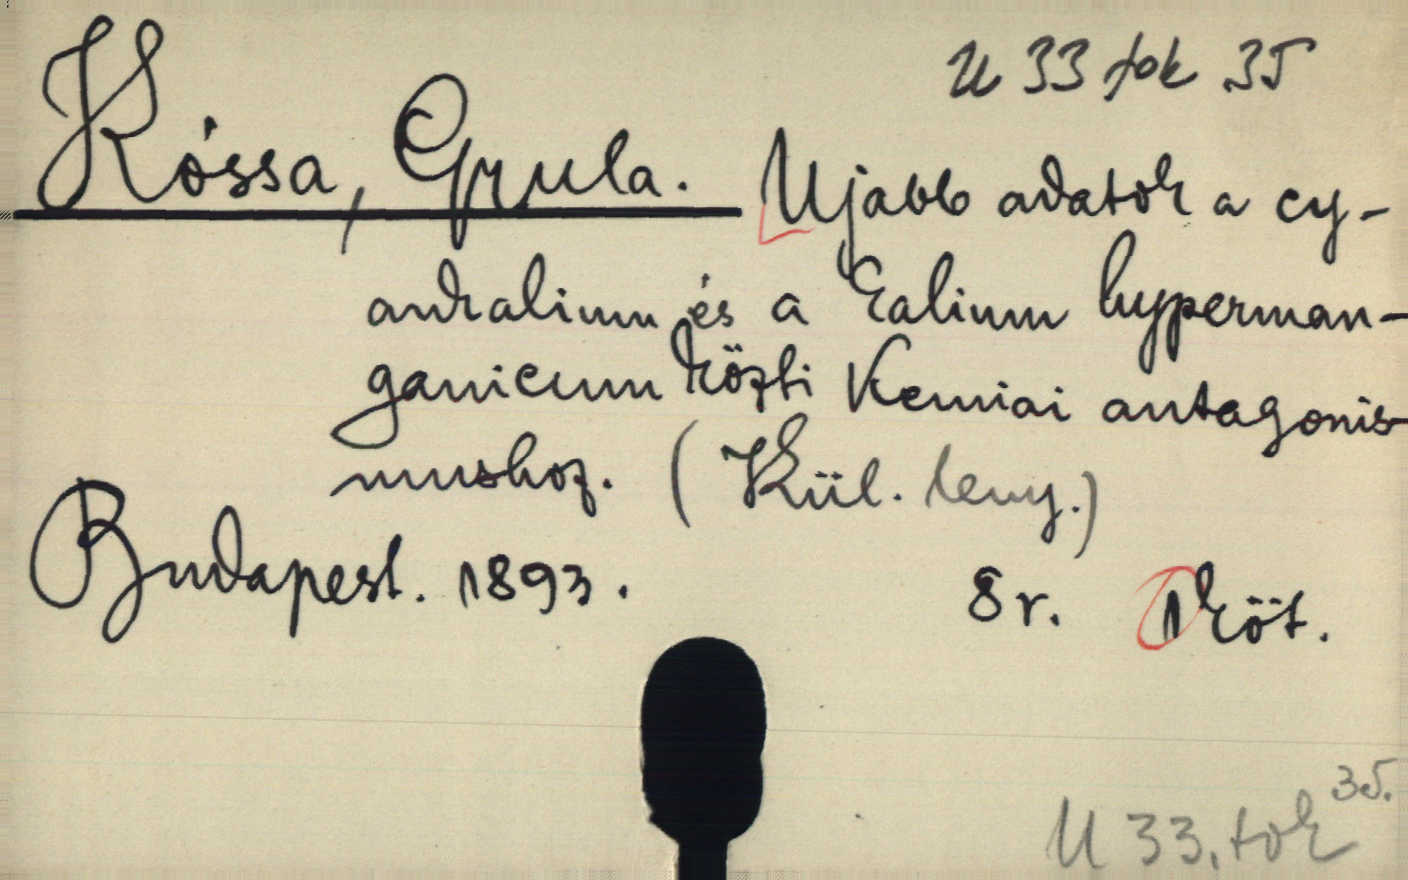 U 33 tok 35
Kóssa, Gyula. Ujabb adatok a cy-
ankalium és a Kalium hyperman-
ganicum közti kemiai antagonis-
mushoz. (Kül. leny.)
Budapest. 1893. 8r. 1 köt.
U 33. tok 35.